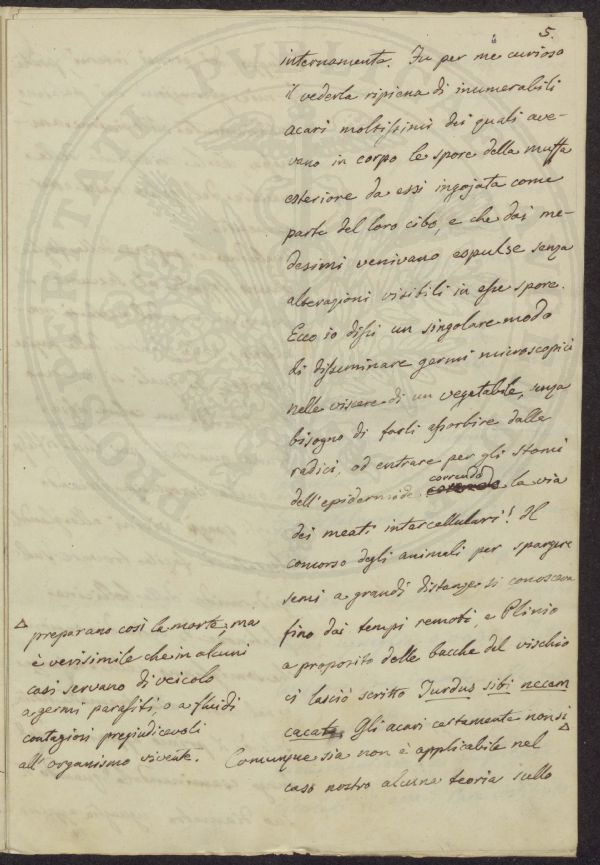 5.
internamente. Fu per me curioso
il vederla ripiena di inumerabili
acari moltissimi dei quali ave-
vano in corpo le spore della muffa
esteriore da essi ingojata come
parte del loro cibo, e che dai me-
desimi venivano espulse senza
alterazioni visibili in esse spore.
Ecco io dissi un singolare modo
di disseminare germi microscopici
nelle viscere di un vegetabile, senza
bisogno di farli assorbire dalle
radici, od entrare per gli stomi
dell'epidermide, correndo la via
dei meati intercellulari! Il
concorso degli animali per spargere
semi a grandi distanze si conosceva
fino dai tempi remoti, e Plinio
a proposito delle bacche del vischio
ci lasciò scritto Turdus sibi necam
cacat. Gli acari certamente non si
preparano così la morte; ma
è verisimile che in alcuni
casi servano di veicolo
a germi parasiti, o a fluidi
contagiosi pregiudicevoli
all'organismo vivente. Comunque sia non è applicabile nel
caso nostro alcuna teoria sullo
PROSPERITATI PUBLICAE